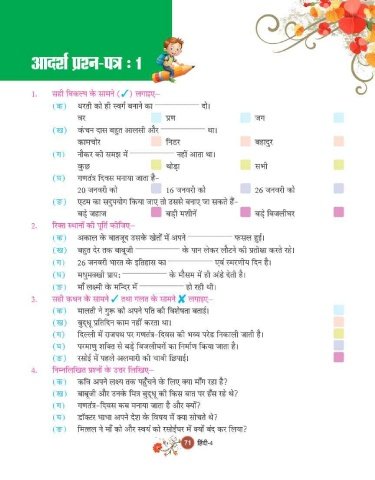 आदर्श प्रश्न-पत्र : 1
1. सही विकल्प के सामने (✓) लगाइए–
(क) धरती को ही स्वर्ग बनाने का ____________ दो।
वर प्रण जग
(ख) कंचन दास बहुत आलसी और ____________ था।
कामचोर निडर बहादुर
(ग) नौकर की समझ में ____________ नहीं आता था।
कुछ थोड़ा सभी
(घ) गणतंत्र दिवस मनाया जाता है-
20 जनवरी को 16 जनवरी को 26 जनवरी को
(ङ) एटम का सदुपयोग किया जाए तो उससे बनाए जा सकते हैं-
बड़े जहाज बड़ी मशीनें बड़े बिजलीघर
2. रिक्त स्थानों की पूर्ति कीजिए–
(क) अकाल के बावजूद उसके खेतों में अपने ____________ फसल हुई।
(ख) बहुत देर तक बाबूजी ____________ के पान लेकर लौटने की प्रतीक्षा करते रहे।
(ग) 26 जनवरी भारत के इतिहास का ____________ एवं स्मरणीय दिन है।
(घ) मधुमक्खी प्राय: ____________ के मौसम में ही अंडे देती है।
(ङ) माँ लक्ष्मी के मन्दिर में ____________ हो रही थी।
3. सही कथन के सामने ✓ तथा गलत के सामने ✗ लगाइए–
(क) मालती ने गुरू को अपने पति की विशेषता बताई।
(ख) बुद्धू प्रतिदिन काम नहीं करता था।
(ग) दिल्ली में राजपथ पर गणतंत्र-दिवस की भव्य परेड निकाली जाती है।
(घ) परमाणु शक्ति से बड़े बिजलीघरों का निर्माण किया जाता है।
(ङ) रसोई में पहले अलमारी की चाबी छिपाई।
4. निम्नलिखित प्रश्नों के उत्तर लिखिए–
(क) कवि अपने लक्ष्य तक पहुँचने के लिए क्या माँग रहा है?
(ख) बाबूजी और उनके मित्र बुद्धू की किस बात पर हँस रहे थे?
(ग) गणतंत्र-दिवस कब मनाया जाता है और क्यों?
(घ) डॉक्टर भाभा अपने देश के विषय में क्या सोचते थे?
(ङ) मित्तल ने माँ को और स्वयं को रसोईघर में क्यों बंद कर लिया?
71 हिंदी-4